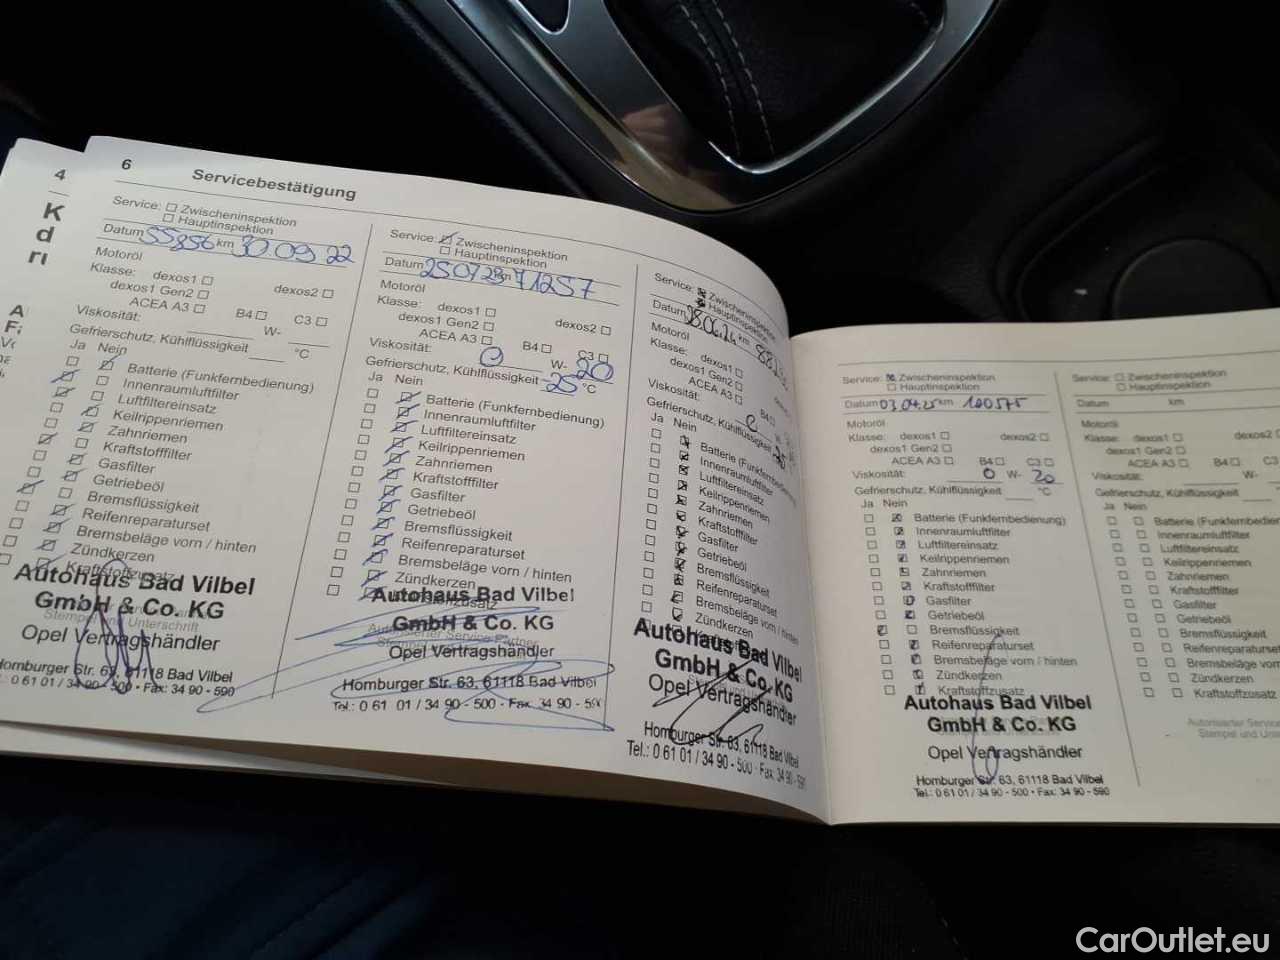 4
K
d
6
Servicebestätigung
Service: Zwischeninspektion
Hauptinspektion
Datum 55856 km 30.09.22
Motoröl
Klasse: dexos1 dexos2
dexos1 Gen2
ACEA A3 B4 C3
Viskosität: W-
Gefrierschutz, Kühlflüssigkeit °C
Ja Nein
Batterie (Funkfernbedienung)
Innenraumluftfilter
Luftfiltereinsatz
Keilrippenriemen
Zahnriemen
Kraftstofffilter
Gasfilter
Getriebeöl
Bremsflüssigkeit
Reifenreparaturset
Bremsbeläge vorn / hinten
Zündkerzen
Kraftstoffzusatz
Stempel und Unterschrift
Autohaus Bad Vilbel
GmbH & Co. KG
Opel Vertragshändler
Homburger Str. 63, 61118 Bad Vilbel
0 61 01 / 34 90 - 500 • Fax: 34 90 - 590
Service: Zwischeninspektion
Hauptinspektion
Datum 25.07.23 km 71257
Motoröl
Klasse: dexos1 dexos2
dexos1 Gen2
ACEA A3 B4 C3
Viskosität: 0 W- 20
Gefrierschutz, Kühlflüssigkeit -25 °C
Ja Nein
Batterie (Funkfernbedienung)
Innenraumluftfilter
Luftfiltereinsatz
Keilrippenriemen
Zahnriemen
Kraftstofffilter
Gasfilter
Getriebeöl
Bremsflüssigkeit
Reifenreparaturset
Bremsbeläge vorn / hinten
Zündkerzen
Autorisierter Service Partner
Autohaus Bad Vilbel
GmbH & Co. KG
Opel Vertragshändler
Homburger Str. 63, 61118 Bad Vilbel
Tel.: 0 61 01 / 34 90 - 500 • Fax 34 90 - 590
Service: Zwischeninspektion
Hauptinspektion
Datum 28.06.24 km
Motoröl
Klasse: dexos1
dexos1 Gen2
ACEA A3 B4
Viskosität: 0
Gefrierschutz, Kühlflüssigkeit
Ja Nein
Batterie (Funkfernbedienung)
Innenraumluftfilter
Luftfiltereinsatz
Keilrippenriemen
Zahnriemen
Kraftstofffilter
Gasfilter
Getriebeöl
Bremsflüssigkeit
Reifenreparaturset
Bremsbeläge vorn / hinten
Zündkerzen
Autohaus Bad Vilbel
GmbH & Co. KG
Opel Vertragshändler
Homburger Str. 63, 61118 Bad Vilbel
Tel.: 0 61 01 / 34 90 - 500 • Fax 34 90 - 590
Service: Zwischeninspektion
Hauptinspektion
Datum 03.04.25 km 100575
Motoröl
Klasse: dexos1 dexos2
dexos1 Gen2
ACEA A3 B4 C3
Viskosität: 0 W- 20
Gefrierschutz, Kühlflüssigkeit °C
Ja Nein
Batterie (Funkfernbedienung)
Innenraumluftfilter
Luftfiltereinsatz
Keilrippenriemen
Zahnriemen
Kraftstofffilter
Gasfilter
Getriebeöl
Bremsflüssigkeit
Reifenreparaturset
Bremsbeläge vorn / hinten
Zündkerzen
Kraftstoffzusatz
Autohaus Bad Vilbel
GmbH & Co. KG
Opel Vertragshändler
Homburger Str. 63, 61118 Bad Vilbel
Tel.: 0 61 01 / 34 90 - 500 • Fax: 34 90 - 590
Service: Zwischeninspektion
Hauptinspektion
Datum km
Motoröl
Klasse: dexos1 dexos2
dexos1 Gen2
ACEA A3 B4 C3
Viskosität: W-
Gefrierschutz, Kühlflüssigkeit
Ja Nein
Batterie (Funkfernbedien
Innenraumluftfilter
Luftfiltereinsatz
Keilrippenriemen
Zahnriemen
Kraftstofffilter
Gasfilter
Getriebeöl
Bremsflüssigkeit
Reifenreparaturset
Bremsbeläge vorn / hinten
Zündkerzen
Kraftstoffzusatz
Autorisierter Service
Stempel und Unter
CarOutlet.eu